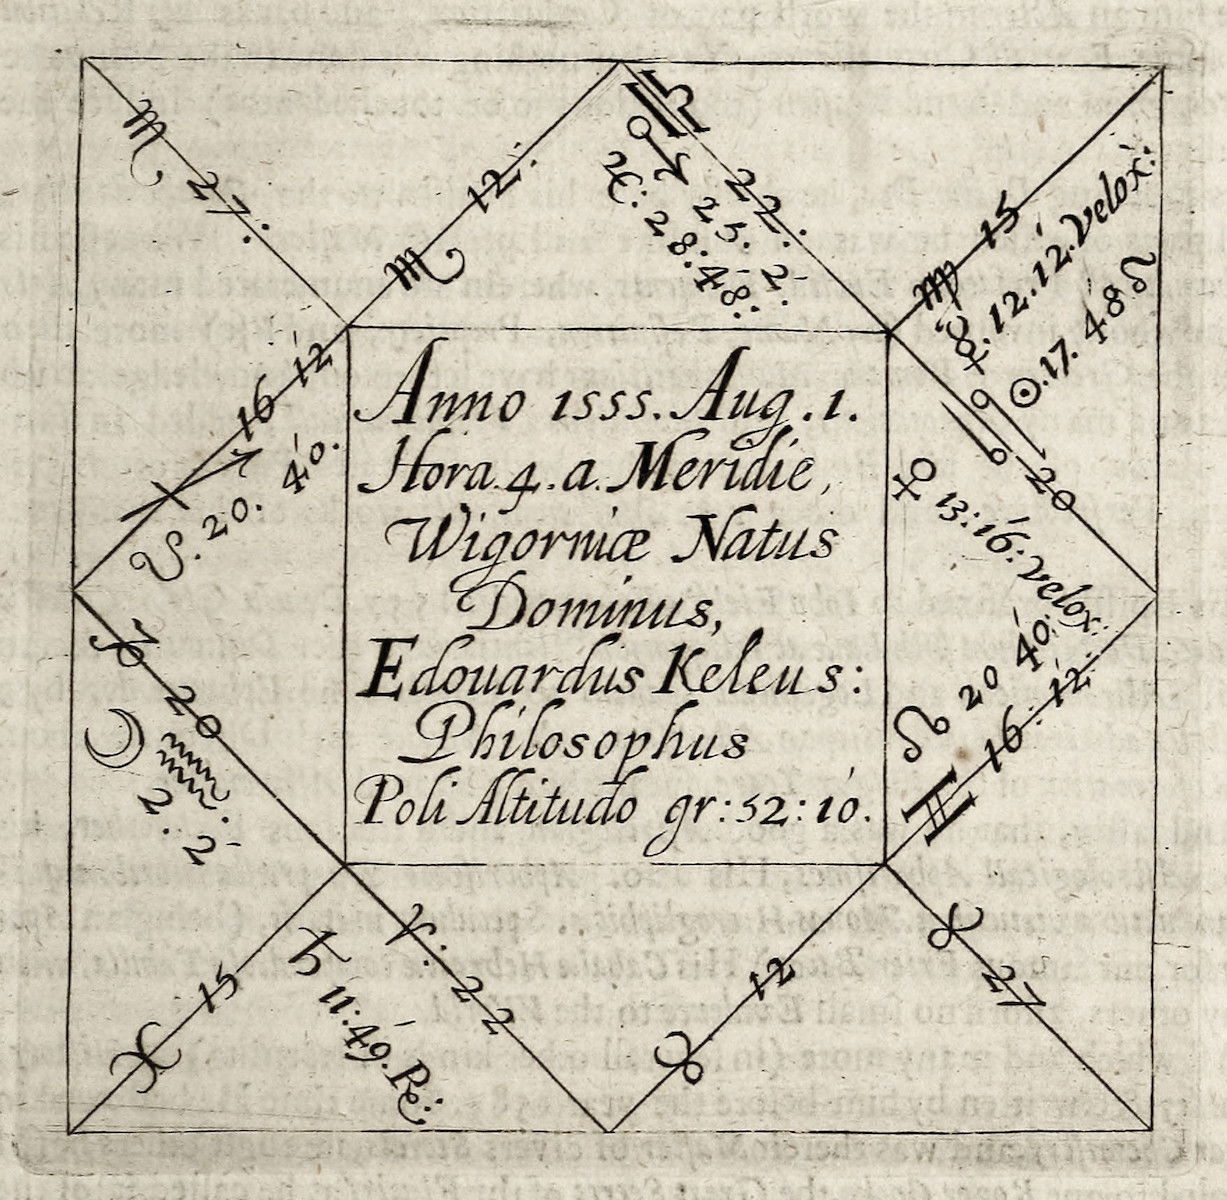 ♏ 27:
♏ 12:
♎ 22:
♂ 25. 2.
♃: 28: 48:
♍ 15
☿: 12. 12. velox:
☉. 17. 48 ♌
♋ 20
♀ 13: 16: velox:
♐ 16 12
☋. 20. 40.
Anno 1555. Aug. 1.
Hora. 4. a. Meridie,
Wigorniæ Natus
Dominus,
Edouardus Keleus:
Philosophus
Poli Altitudo gr: 52: 10.
♑ 20
☽ ♒.
2. 2
☊ 20 40:
♊ 16: 12:
♓ 15
♈. 22
♄ 11: 49. Re:
♉ 12
♉ 27